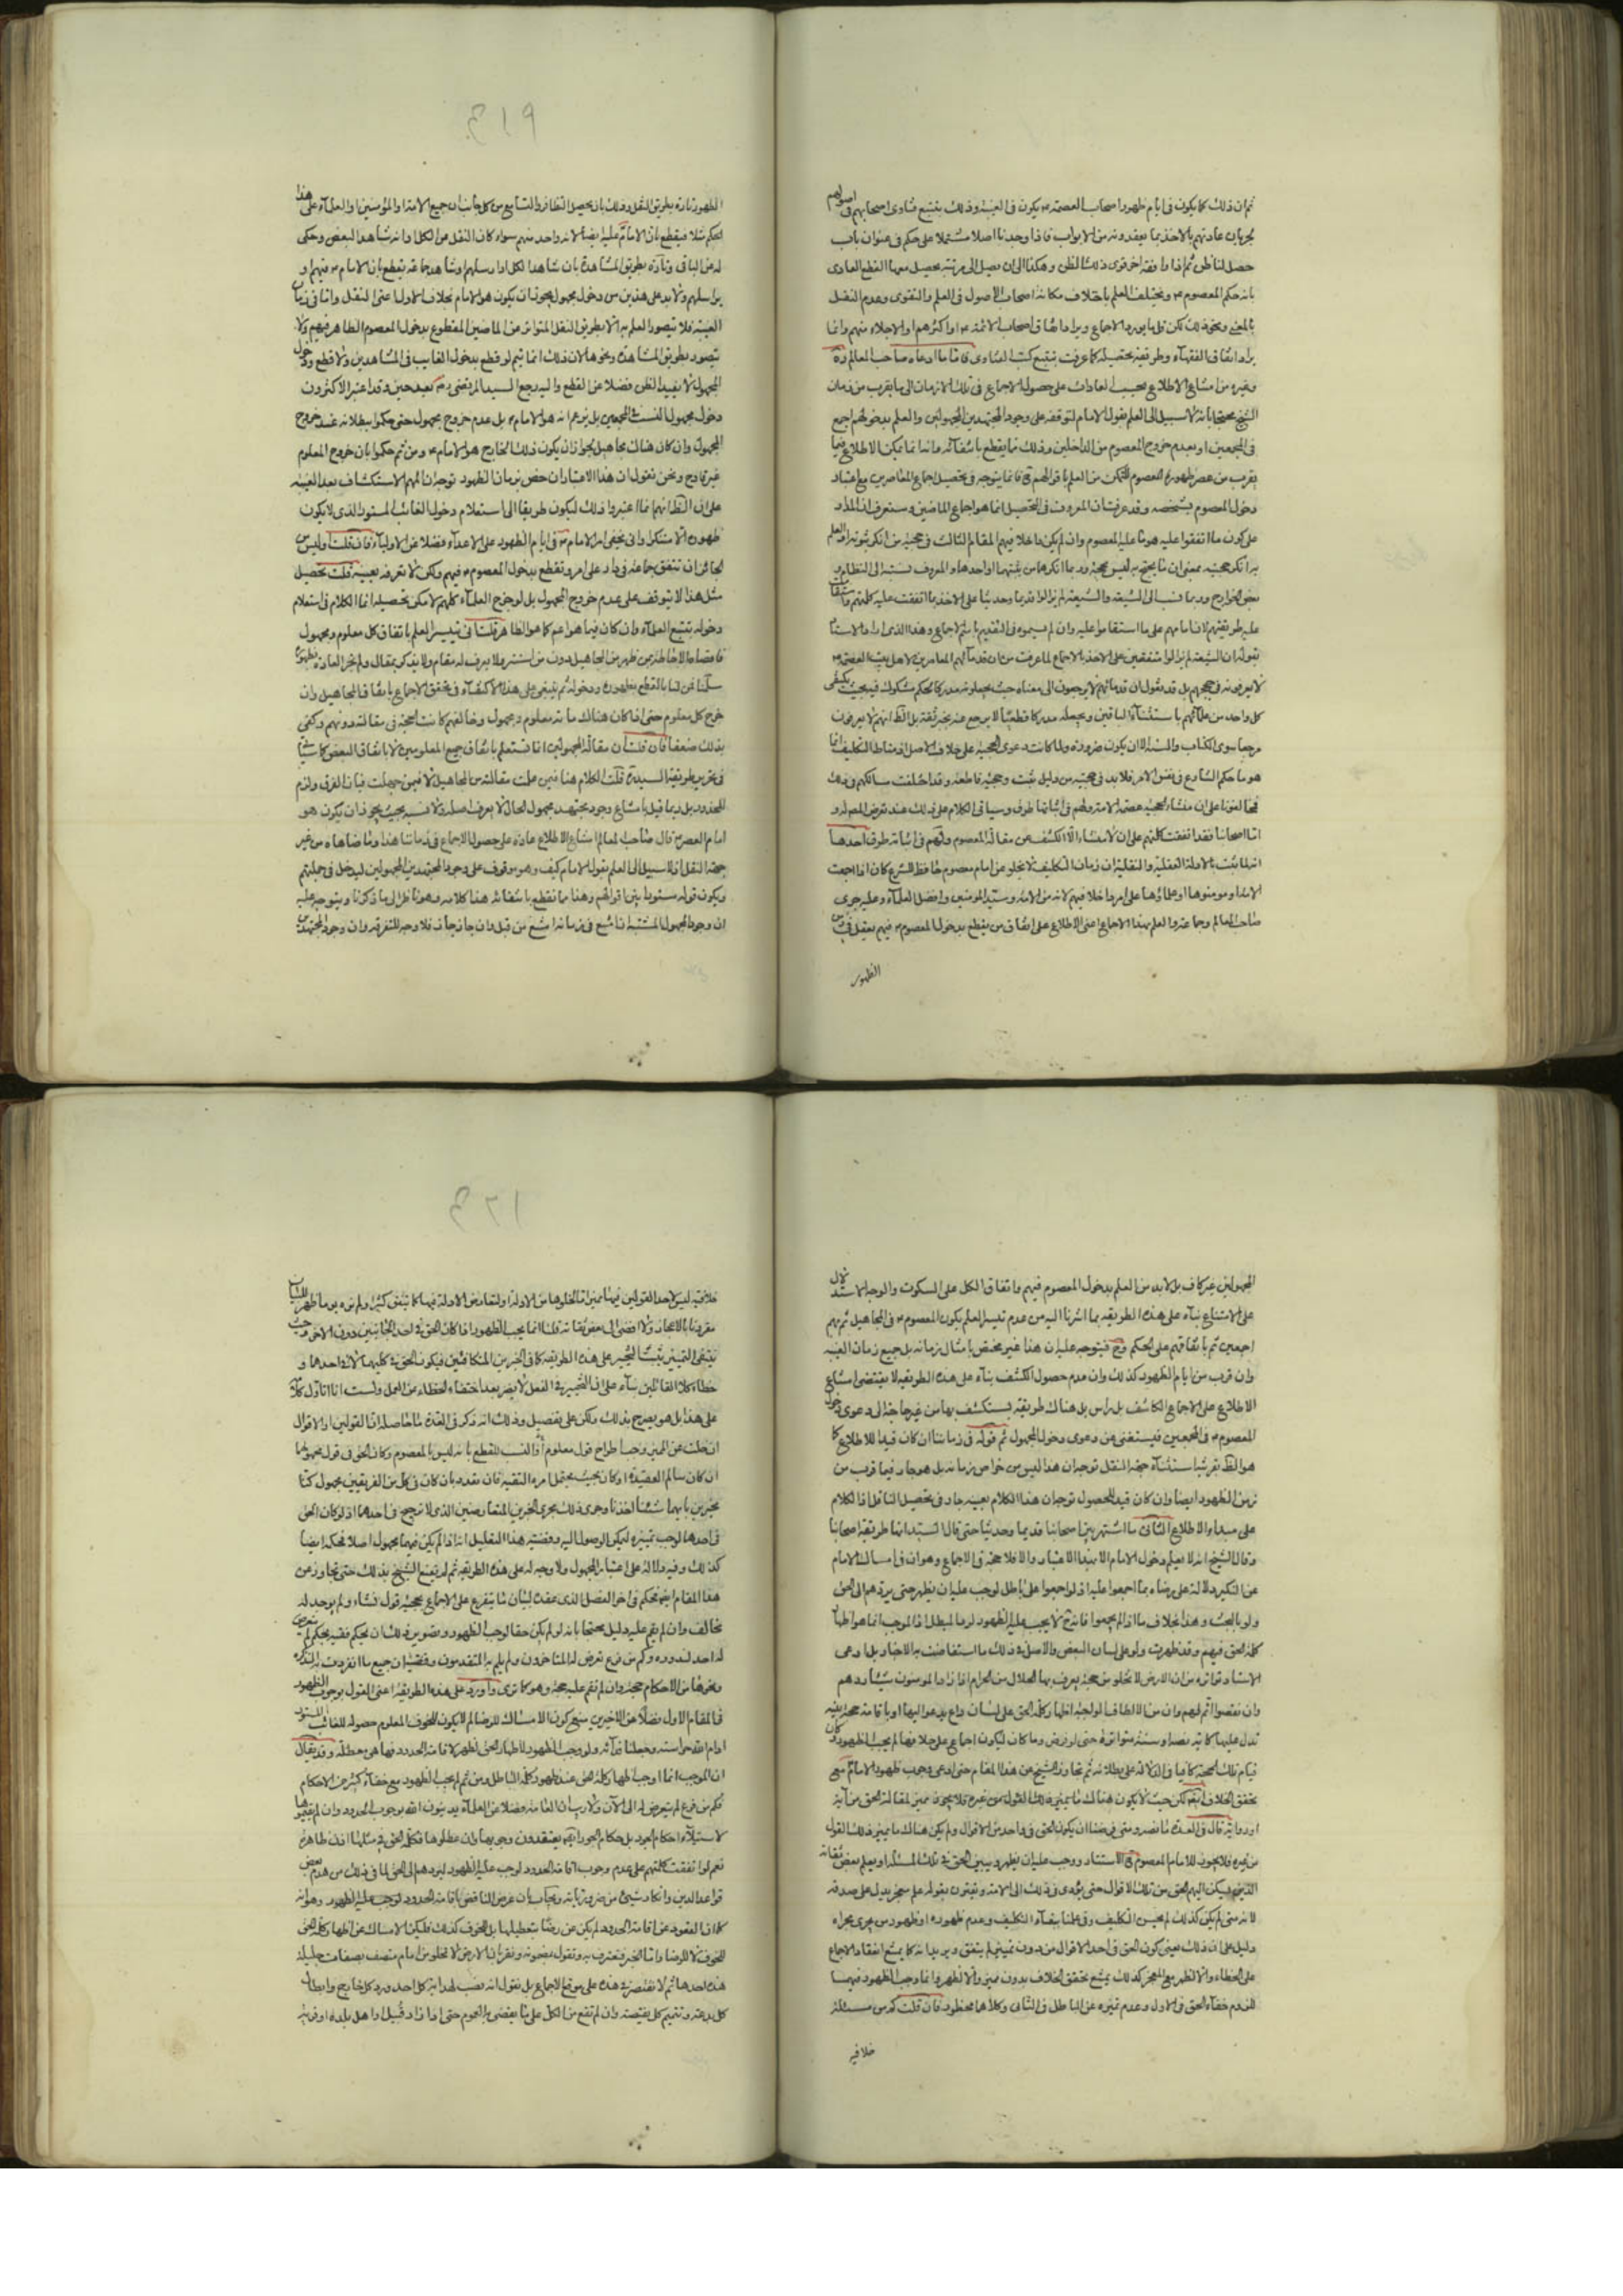 ثم ان ذلك كما يكون فى ايام ظهور اصحاب العصمة يكون فى الغيبة وذلك بتتبع فتاوى اصحابهم فى اصولهم
لجريان عادتهم بالاخذ بما يعقدونه من الابواب فاذا وجدنا اصلا مشتملا على حكم فى عنوان باب
حصل لنا ظن ثم اذا وافقه اخر قوى ذلك الظن وهكذا الى ان يصل الى مرتبة يحصل معها القطع العادى
بانه حكم المعصوم ويختلف العلم باختلاف مكانة اصحاب الاصول فى العلم والتقوى وعدم النقل
بالمعنى ونحو ذلك لكن قل ما يورد الاجماع ويراد اتفاق اصحاب الائمة او اكثرهم او الاجلاء منهم وانما
يراد اتفاق الفقهاء وطريقة تحصيله كما عرفت بتتبع كتب الفتاوى فاما ما ادعاه صاحب المعالم ره
وغيره من امتناع الاطلاع بحسب العادات على حصول الاجماع فى تلك الازمان الى ما يقرب من زمان
الشيخ محتجا بانه لا سبيل الى العلم بقول الامام لتوقفه على وجود المجتهدين المجهولين والعلم بدخولهم اجمع
فى المجمعين او بعدم خروج المعصوم من الداخلين وذلك مما يقطع بانتفائه وانه انما يمكن الاطلاع فيما
يقرب من عصر ظهور المعصوم للتمكن من العلم باقوالهم فانما يتوجه فى تحصيل اجماع المعاصرين مع اعتبار
دخول المعصوم بشخصه وقد عرفت ان المعروف فى التحصيل انما هو اجماع الماضين وستعرف ان المدار
على كون ما اتفقوا عليه هو ما عليه المعصوم وان لم يكن داخلا فيهم المقام الثالث فى حجيته من انكر ثبوته او العلم
به انكر حجيته بمعنى ان ما يحتج به ليس بحجة وربما انكرها من يثبتهما او احدهما والمعروف نسبته الى النظام و
بعض الخوارج وربما نسب الى الشيعة والشيعة لم يزالوا قديما وحديثا على الاخذ بما اتفقت عليه كلمتهم واستقامت
عليه طريقتهم لانا مامهم على ما استقاموا عليه وان لم يسموه فى القديم باسم الاجماع وهذا الذى اراد الاستاد
بقوله ان الشيعة لم يزالوا متفقين على الاخذ بالاجماع لما عرفت من ان قدمائهم المعاصرين لاهل بيت العصمة
لا يعرفونه فى حججهم بل قد يقول ان قدمائهم لا يرجعون الى معناه حيث يجعلونه مدركا لحكم مشكوك فيه بحيث يكتفى
كل واحد من علمائهم باستثناء الباقين ويجعله مدركا قطعيا لا يرجع عنه بخبر ثقة بل الظ انهم لا يعرفون
مرجعا سوى الكتاب والسنة الا ان يكون ضرورة ولما كانت دعوى الحجية على خلاف الاصل اذ مناط التكليف انما
هو ما حكم الشارع فى نفس الامر فلا بد فى حجيته من دليل مثبت وحجة قاطعة وقد اختلفت مسالكهم فى ذلك
فمخالفونا على ان منشاء الحجية عصمة الامة ولهم فى اثباتها طرق وسياتى الكلام على ذلك عند تعرض المص له و
اما اصحابنا فقد اتفقت كلمتهم على ان لا منشاء الا الكشف عن مقالة المعصوم ولهم فى اثباته طرق احدها
انه لما ثبت بالادلة العقلية والنقلية ان زمان التكليف لا يخلو عن امام معصوم حافظ للشرع كان اذا اجمعت
الامة او مومنوها او علماؤها على امر داخلا فيهم لانه من الامة وسيد المومنين وافضل العلماء وعليه جرى
صاحب المعالم وجماعة والعلم بهذا الاجماع اعنى الاطلاع على اتفاق من يقطع بدخول المعصوم فيهم يعقل فى زمن
الظهور
٤١٩
الظهور تارة بطريق النقل وذلك بان يحصل التظافر والتسامع من كل جانب ان جميع الامة او المؤمنين او العلماء على هذا
الحكم مثلا فيقطع بان الامام عليه ايضا لانه واحد منهم سواء كان النقل من الكل او انه شاهد البعض وحكى
له عن الباقى وتارة بطريق المشاهدة بان شاهد الكل او راسلهم او شاهد جماعة يقطع بان الامام منهم او
يراسلهم ولا بد على هذين من دخول مجهول يجوز ان يكون هو الامام بخلاف الاول اعنى النقل واما فى زمان
الغيبة فلا يتصور العلم به الا بطريق النقل المتواتر عن الماضين المقطوع بدخول المعصوم الظاهر فيهم ولا
يتصور بطريق المشاهدة ونحوها لان ذلك انما يتم لو قطع بدخول الغايب فى المشاهدين ولا قطع ودخول
المجهول لا يفيد الظن فضلا عن القطع واليه رجع السيد المرتضى ره بعد حين وقد اعتبر الاكثرون
دخول مجهول النسب فى المجمعين بل يزعم انه هو الامام بل عدم خروج مجهول حتى حكموا ببطلانه عند خروج
المجهول وان كان هناك مجاهيل لجواز ان يكون ذلك الخارج هو الامام ومن ثم حكموا بان خروج المعلوم
غير قادح ونحن نقول ان هذا الاعتبار ان خص بزمان الظهور توجه ان المهم الاستكشاف بعد الغيبة
على ان الظ انهم انما اعتبروا ذلك ليكون طريقا الى استعلام دخول الغائب المستور الذى لا يكون
ظهوره الا متنكرا وانى يخفى امر الامام فى ايام الظهور على الاعداء فضلا عن الاولياء فان قلت اوليس من
الجائز ان تتفق جماعة فى دار على امر ونقطع بدخول المعصوم فيهم ولكن لا نعرفه بعينه قلت تحصيل
مثل هذا لا يتوقف على عدم خروج المجهول بل لو خرج العلماء كلهم لامكن تحصيله انما الكلام فى استعلام
دخوله بتتبع العلماء وان كان فيما هو اعم كما هو الظاهر قلنا فى تيسر العلم باتفاق كل معلوم ومجهول
فاقصاه الاحاطة بمن ظهر من المجاهيل دون من استتر ولا يعرف له مقام ولا يذكر بمقال ولم تجر العادة بظهوره
سلمنا لكن لنا بالقطع بظهوره ودخوله ثم ينبغى على هذا الاكتفاء فى تحقق الاجماع باتفاق المجاهيل وان
خرج كل معلوم حتى اذا كان هناك مائة معلوم ومجهول وخالفهم كانت الحجة فى مقالته دونهم وكفى
بذلك ضعفا فان قلت ان مقالة المجهولين انما تستعلم باتفاق جميع المعلومين لا باتفاق البعض كما سيأتى
فى تحرير طريقة السيد قلت الكلام هنا فيمن علمت مقالته من المجاهيل لا فيمن جهلت فبان الفرق ولزم
المحذور بل ربما قيل بامتناع وجود مجتهد مجهول الحال لا يعرف اصله ولا نسبه بحيث يجوز ان يكون هو
امام العصر قال صاحب المعالم امتناع الاطلاع عادة على حصول الاجماع فى زماننا هذا وما ضاهاه من غير
جهة النقل اذ لا سبيل الى العلم بقول الامام كيف وهو موقوف على وجود المجتهدين المجهولين ليدخل فى جملتهم
ويكون قوله مستورا بين اقوالهم وهذا مما نقطع بانتفائه هذا كلامه وهو ناظر الى ما ذكرنا ويتوجه عليه
ان وجود المجهول المشتبه ان امتنع فى زمانه امتنع من قبل وان جاز جاز فلا وجه للتفرقة وان وجود المجتهدين
المجهولين غير كاف بل لا بد من العلم بدخول المعصوم فيهم واتفاق الكل على السكوت والوجه الاستدلال
على الامتناع بناء على هذه الطريقة بما اشرنا اليه من عدم تيسر العلم بكون المعصوم فى المجاهيل ثم بهم
اجمعين ثم باتفاقهم على الحكم وح فيتوجه عليه ان هذا غير مختص بامثال زمانه بل جميع زمان الغيبة
وان قرب من ايام الظهور كذلك وان عدم حصول الكشف بناء على هذه الطريقة لا يقتضى امتناع
الاطلاع على الاجماع الكاشف بل راس بل هناك طريقة يستكشف بها من غير حاجة الى دعوى دخول
المعصوم فى المجمعين فيستغنى عن دعوى دخول المجهول ثم قوله فى زماننا ان كان قيدا للاطلاع كما
هو الظ بقرينة استثناء جهة النقل توجه ان هذا ليس من خواص زمانه بل هو جار فيما قرب من
زمن الظهور ايضا وان كان قيدا للحصول توجه ان هذا الكلام بعينه جار فى تحصيل الناقل اذ الكلام
على مبداء الاطلاع الثانى ما اشتهر بين اصحابنا قديما وحديثا حتى قال السيد انها طريقة اصحابنا
وقال الشيخ انه لا يعلم دخول الامام الا بهذا الاعتبار والا فلا حجة فى الاجماع وهو ان فى امساك الامام
عن النكير دلالة على رضاه بما اجمعوا عليه اذ لو اجمعوا على باطل لوجب عليه ان يظهر حتى يردهم الى الحق
ولو بالبحث وهذا بخلاف ما اذا لم يجمعوا فانه ح لا يجب عليه الظهور لردع المبطل اذ الموجب انما هو اظهار
كلمة الحق فيهم وقد ظهرت ولو على لسان البعض والاصل فى ذلك ما استفاضت به الاخبار بل ادعى
الاستاد تواتره من ان الارض لا تخلو من حجة يعرف بها الحلال من الحرام اذا زاد المومنون شيئا ردهم
وان نقصوا اتم لهم وان من الالطاف الواجبة اظهار كلمة الحق على لسان داع يدعو اليها او باقامة حجة بينة
تدل عليها كاية مصا وسنة متواترة حتى لو فرض وما كان ليكون اجماع على خلافها لم يجب الظهور وكان
قيام تلك الحجة كافيا فى الدلالة على بطلانه ثم تجاوز الشيخ عن هذا المقام حتى ادعى وجوب ظهور الامام مع
تحقق الخلاف ايضا لكن حيث لا يكون هناك ما يميز ذلك القول من غيره فلا يجوز مميز لمقالة الحق من اية
او رواية قال فى العدة ما نصه ومتى فرضنا ان يكون الحق فى واحد من الاقوال ولم يكن هناك ما يميز ذلك القول
من غيره فلا يجوز للامام المعصوم ح الاستتار ووجب عليه ان يظهر ويبين الحق فى تلك المسئلة او يعلم بعض ثقاته
الذين يسكن اليهم الحق من تلك الاقوال حتى يؤدى ذلك الى الامة ويقترن بقوله علم معجز يدل على صدقه
لانه متى لم يكن كذلك لم يحسن التكليف وفى علمنا ببقاء التكليف وعدم ظهوره او ظهور من يجرى مجراه
دليل على ان ذلك يعنى كون الحق فى احد الاقوال من دون تمييز لم يتفق ويريد انه كما يمتنع انعقاد الاجماع
على الخطاء والا لظهر مع المعجز كذلك يمتنع تحقق الخلاف بدون مميز والا لظهر وانما وجب الظهور فيهما
للزوم خفاء الحق فى الاول وعدم تميزه عن الباطل فى الثانى وكلاهما محظور فان قلت كم من مسئلة
خلافية
٤٢٠
خلافية ليس لاحد القولين فيها مميز اما لخلوها من الادلة او لتعارض الادلة فيها كما يتفق كثيرا ولم نره يوما ظهر للبيان
مقرونا بالاعجاز ولا افضى الى بعض ثقاته قلنا انما يجب الظهور اذا كان الحق فى احد الجانبين دون الاخر وحيث
ينتفى التمييز يثبت التخيير على هذه الطريقة كما فى الخبرين المتكافئين فيكون الحق فى كليهما لا فى احدهما و
خطاء كلا القائلين بناء على ان التخيير فى الفعل لا يضر بعد اختفاء الخطاء من العمل ولست انا اتاول كلامه
على هذا بل هو يصرح بذلك ولكن على تفصيل وذلك انه ذكر فى العدة ما حاصله ان القولين او الاقوال
ان خلت عن المميز وجب اطراح قول معلوم النسب للقطع بانه ليس بالمعصوم وكان الحق فى قول مجهولهما
ان كان سالم العقيدة او كان بحيث يحتمل امره التقية فان تعدد بان كان فى كل من الفريقين مجهول كنا
مخيرين بايهما شئنا اخذنا وجرى ذلك مجرى الخبرين المتعارضين الذى لا ترجيح فى احدهما اذ لو كان الحق
فى احدهما لوجب تمييزه ليمكن الوصول اليه وقضية هذا التعليل انه اذا لم يكن فيهما مجهول اصلا فحكمه ايضا
كذلك وفيه دلالة على اعتبار المجهول ولا وجه له على هذه الطريقة ثم لم يقنع الشيخ بذلك حتى تجاوز عن
هذا المقام ايضا فحكم فى اخر الفصل الذى عقده لبيان ما يتفرع على الاجماع بحجية قول فشاء ولم يوجد له
مخالف وان لم يقم عليه دليل محتجا بانه لو لم يكن حقا لوجب الظهور وتصويره ذلك ان يحكم فقيه بحكم لم يتعرض
له احد لندوره وكم من فرع تعرض له المتاخرون ولم يلم به المتقدمون وقضيته ان جميع ما انفردت به التذكرة
ونحوها من الاحكام حجة وان لم تقم عليه حجة وهو كما ترى واورد على هذه الطريقة اعنى القول بوجوب الظهور
فى المقام الاول فضلا عن الاخيرين منع كون الامساك للرضا لم لا يكون للخوف المعلوم حصوله للغائب المستور
ادام الله حراسته وجعلنا فداءه ولو وجب الظهور لاظهار الحق لظهر لاقامة الحدود فها هى معطلة وقد يقال
ان الموجب انما اوجب اظهار كلمة الحق عند ظهور كلمة الباطل ومن ثم لم يجب الظهور مع خفاء كثير من الاحكام
فكم من فرع لم يتعرض له الى الآن ولا ريب ان العامة فضلا عن العلماء يدينون الله بوجوب الحدود وان لم يقيموها
لاستيلاء احكام الجور بل حكام الجور ايضا يعتقدون وجوبها وان عطلوها فكلمة الحق فى مثلها اذن ظاهرة
نعم لو اتفقت كلمتهم على عدم وجوب اقامة الحدود لوجب عليه الظهور ليردهم الى الحق لما فى ذلك من هدم بعض
قواعد الدين وانكار شيئ من ضرورياته ويجاب بان غرض الناقض باقامة الحدود لوجب عليه الظهور وهو انه
كما ان القعود عن اقامة الحدود لم يكن عن رضا بتعطيلها بل للخوف كذلك فليكن الامساك عن اظهار كلمة الحق
للخوف لا للرضا واما الخبر فنعترف به ونقول بمضمونه ونقر بان الارض لا تخلو من امام متصف بصفات جليلة
هذه احدها ثم لا نقتصر فى هذه على موقع الاجماع بل نقول انه نصب لهداية كل احد ورد كل خارج وابطال
كل بدعة وتتميم كل نقيصة وان لم تقع من الكل على ما يقضى به العموم حتى اذا زاد قبيل او اهل بلدة او قرية